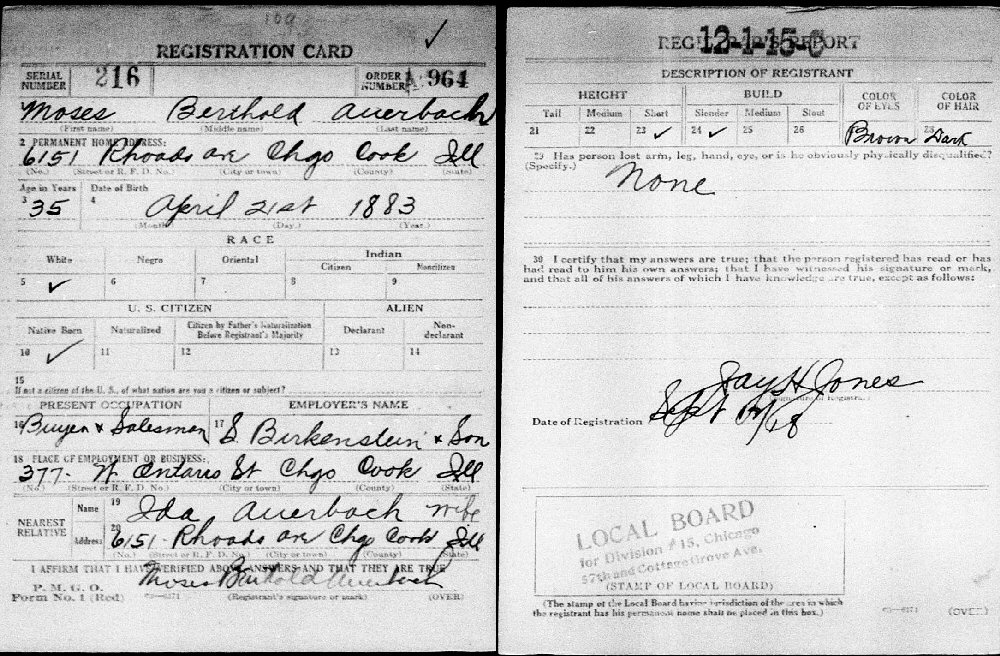 109
REGISTRATION CARD
SERIAL NUMBER 216 ORDER NUMBER 964
Moses Berthold Auerbach
(First name) (Middle name) (Last name)
2 PERMANENT HOME ADDRESS:
6151 Rhoads ave Chgo Cook Ill
(No.) (Street or R. F. D. No.) (City or town) (County) (State)
Age in Years Date of Birth
3 35 4 April 21st 1883
(Month) (Day.) (Year.)
RACE
White Negro Oriental Indian
Citizen Noncitizen
5 ✓ 6 7 8 9
U. S. CITIZEN ALIEN
Native Born Naturalized Citizen by Father's Naturalization Before Registrant's Majority Declarant Non-declarant
10 ✓ 11 12 13 14
15
If not a citizen of the U. S., of what nation are you a citizen or subject?
PRESENT OCCUPATION EMPLOYER'S NAME
16 Buyer & Salesman 17 S Birkenstein & Son
18 PLACE OF EMPLOYMENT OR BUSINESS:
377 W Ontario St Chgo Cook Ill
(No.) (Street or R. F. D. No.) (City or town) (County) (State)
NEAREST RELATIVE Name 19 Ida Auerbach wife
Address 20 6151 Rhoads ave Chgo Cook Ill
(No.) (Street or R. F. D. No.) (City or town) (County) (State)
I AFFIRM THAT I HAVE VERIFIED ABOVE ANSWERS AND THAT THEY ARE TRUE
P. M. G. O.
Form No. 1 (Red) Moses Berthold Auerbach
(Registrant's signature or mark) (OVER)
REGISTRAR'S REPORT
12-1-15-C
DESCRIPTION OF REGISTRANT
HEIGHT BUILD COLOR OF EYES COLOR OF HAIR
Tall Medium Short Slender Medium Stout
21 22 23 ✓ 24 ✓ 25 26 Brown 28 Dark
29 Has person lost arm, leg, hand, eye, or is he obviously physically disqualified?
(Specify.) None
30 I certify that my answers are true; that the person registered has read or has
had read to him his own answers; that I have witnessed his signature or mark,
and that all of his answers of which I have knowledge are true, except as follows:
Jay H Jones
(Signature of Registrar.)
Date of Registration Sept 18
LOCAL BOARD
for Division #15, Chicago
57th and Cottage Grove Ave.
(STAMP OF LOCAL BOARD)
(The stamp of the Local Board having jurisdiction of the area in which
the registrant has his permanent home shall be placed in this box.)
(OVER)